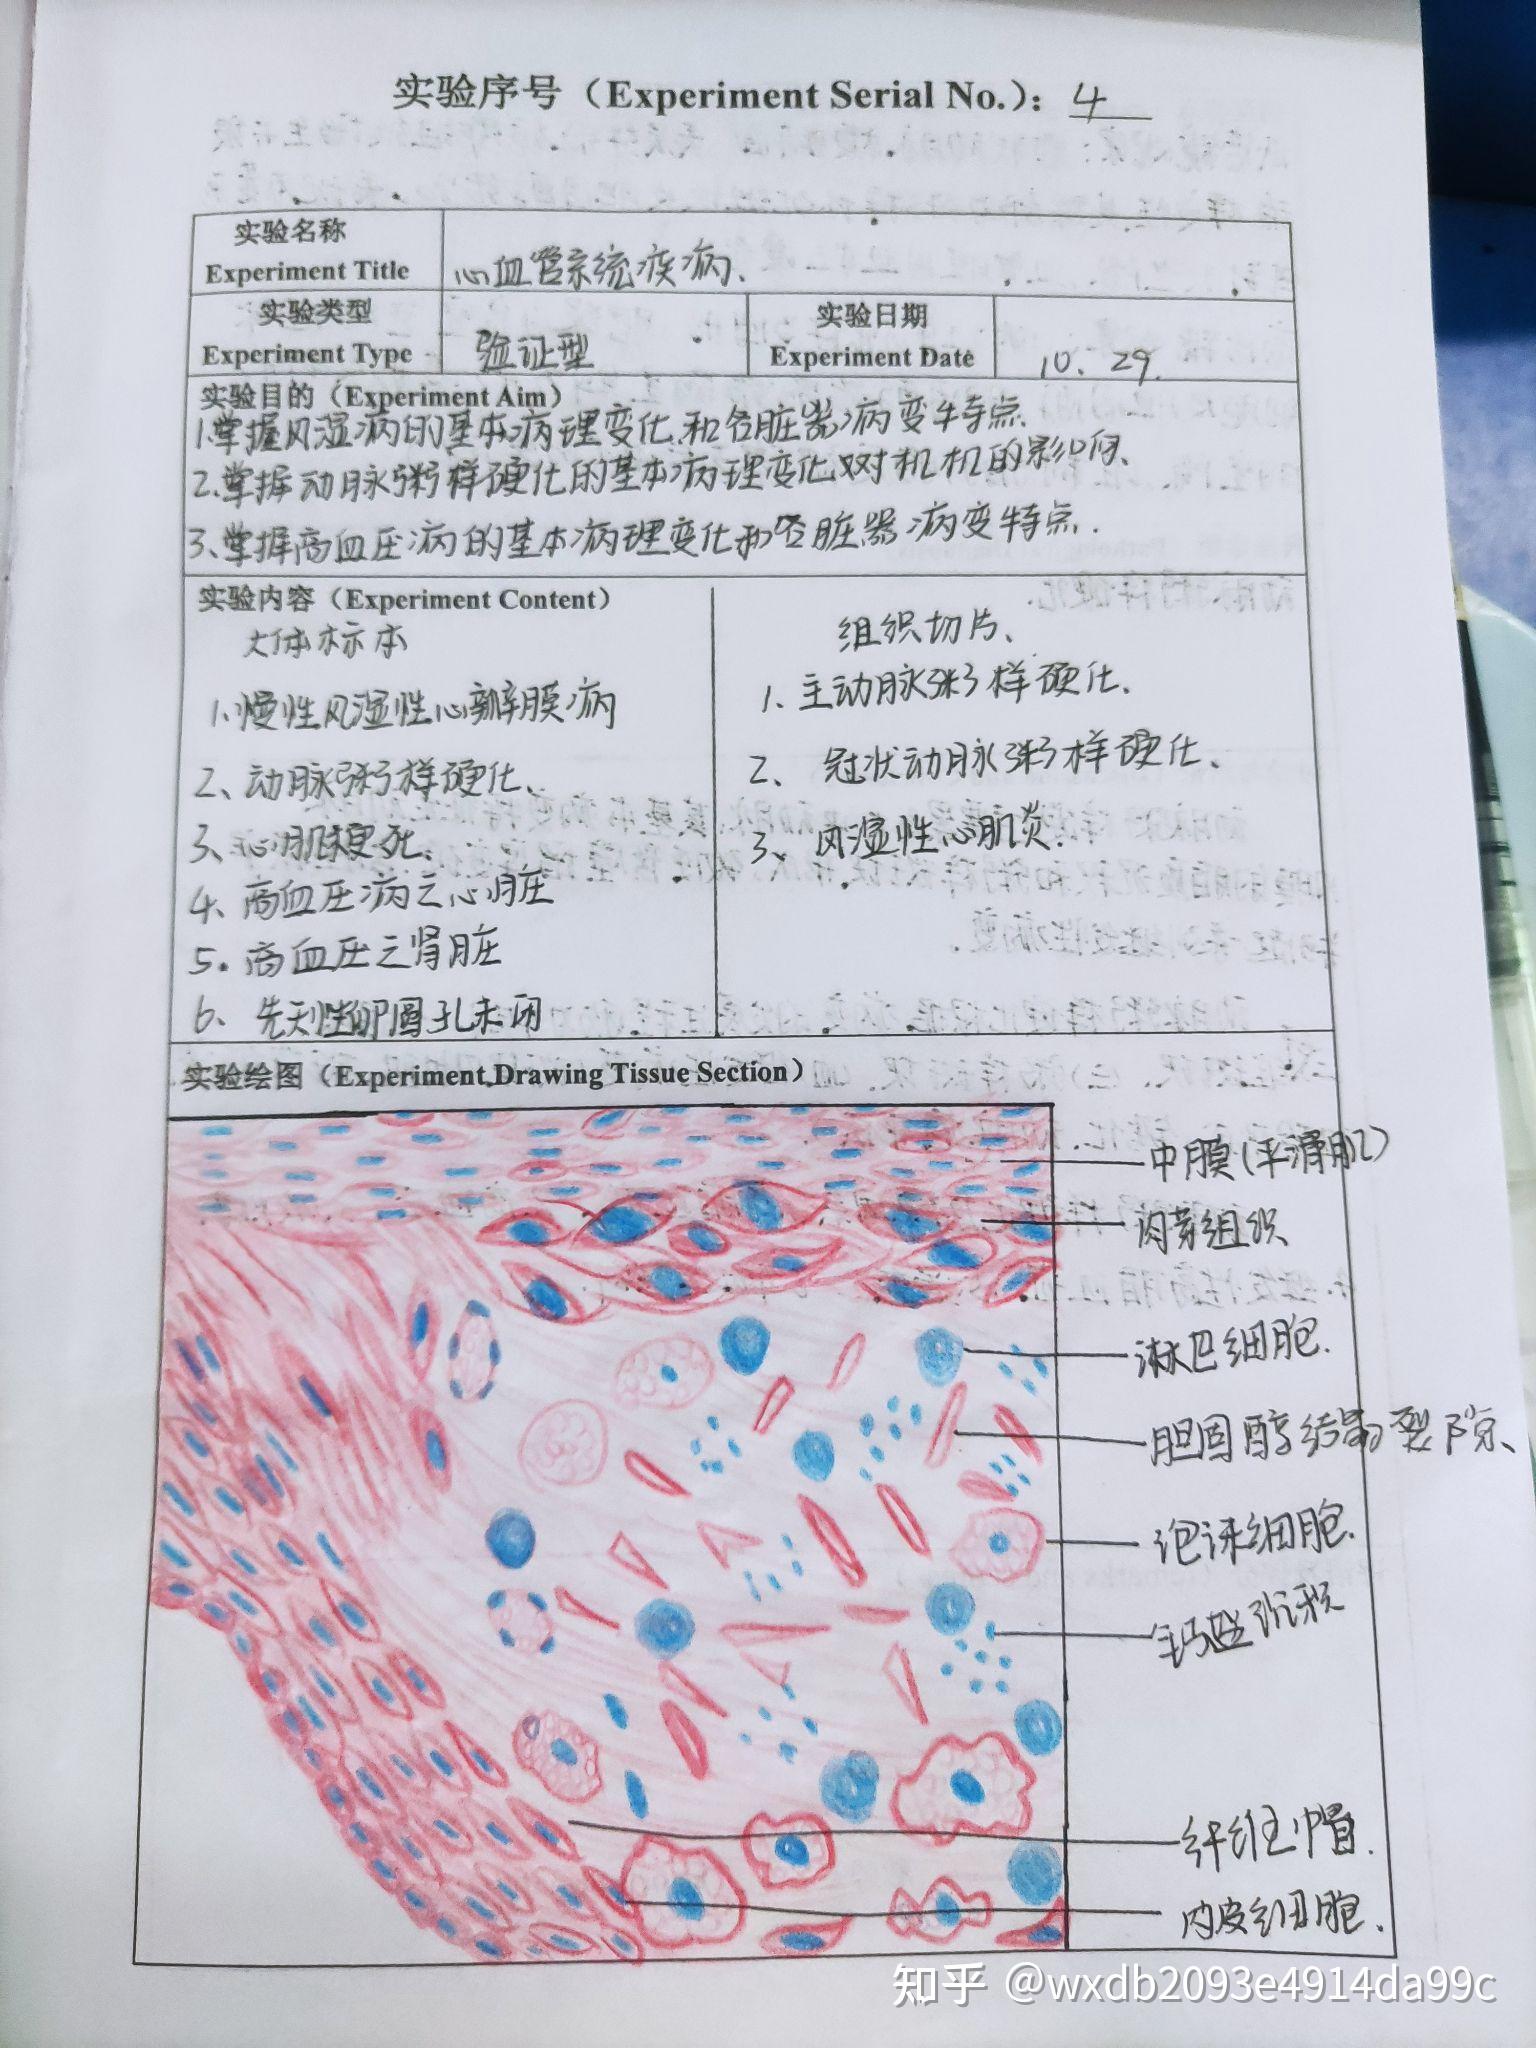 实验序号（Experiment Serial No.）：4
实验名称
Experiment Title
心血管系统疾病、
实验类型
Experiment Type
验证型
实验日期
Experiment Date
10. 29.
实验目的（Experiment Aim）
1.掌握风湿病的基本病理变化和各脏器病变特点
2.掌握动脉粥样硬化的基本病理变化对机机的影响、
3、掌握高血压病的基本病理变化和各脏器病变特点.
实验内容（Experiment Content）
大体标本
1.慢性风湿性心瓣膜病
2、动脉粥样硬化、
3、心肌梗死、
4、高血压病之心脏
5. 高血压之肾脏
6、先天性卵圆孔未闭
组织切片、
1. 主动脉粥样硬化.
2、冠状动脉粥样硬化、
3、风湿性心肌炎.
实验绘图（Experiment Drawing Tissue Section）
中膜(平滑肌)
肉芽组织
淋巴细胞.
胆固醇结晶裂隙、
泡沫细胞.
钙盐沉积
纤维帽.
内皮细胞.
知乎 @wxdb2093e4914da99c